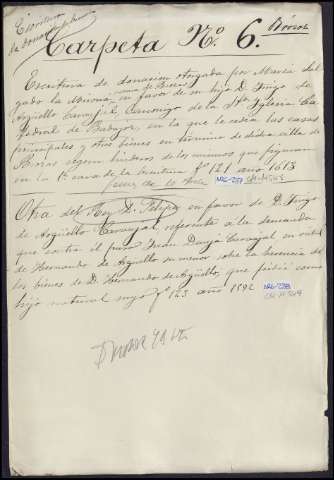 Escritura
de donacion
Brozas
Carpeta Nº 6.
Escritura de donacion otorgada por Maria Del
gado la Bizoña, en favor de su hijo D. Diego de
Arguello Carvajal, Canonigo de la Sta Iglesia Ca
tedral de Badajoz, en la que le cedia las casas
principales y otros bienes en término de dicha villa de
Brozas segun linderos de los mismos que figuran
en la 1ª cara de la escritura fº 121 año 1613
Otra del Rey D. Felipe en favor de D. Diego
de Argüello Carvajal, referente a la demanda
que contra el puso Juan Carvajal en
de Hernando de Arguello su menor sobre la herencia de
los bienes de D. Hernando de Argüello, que pedia como
hijo natural suyo fº 123 año 1592